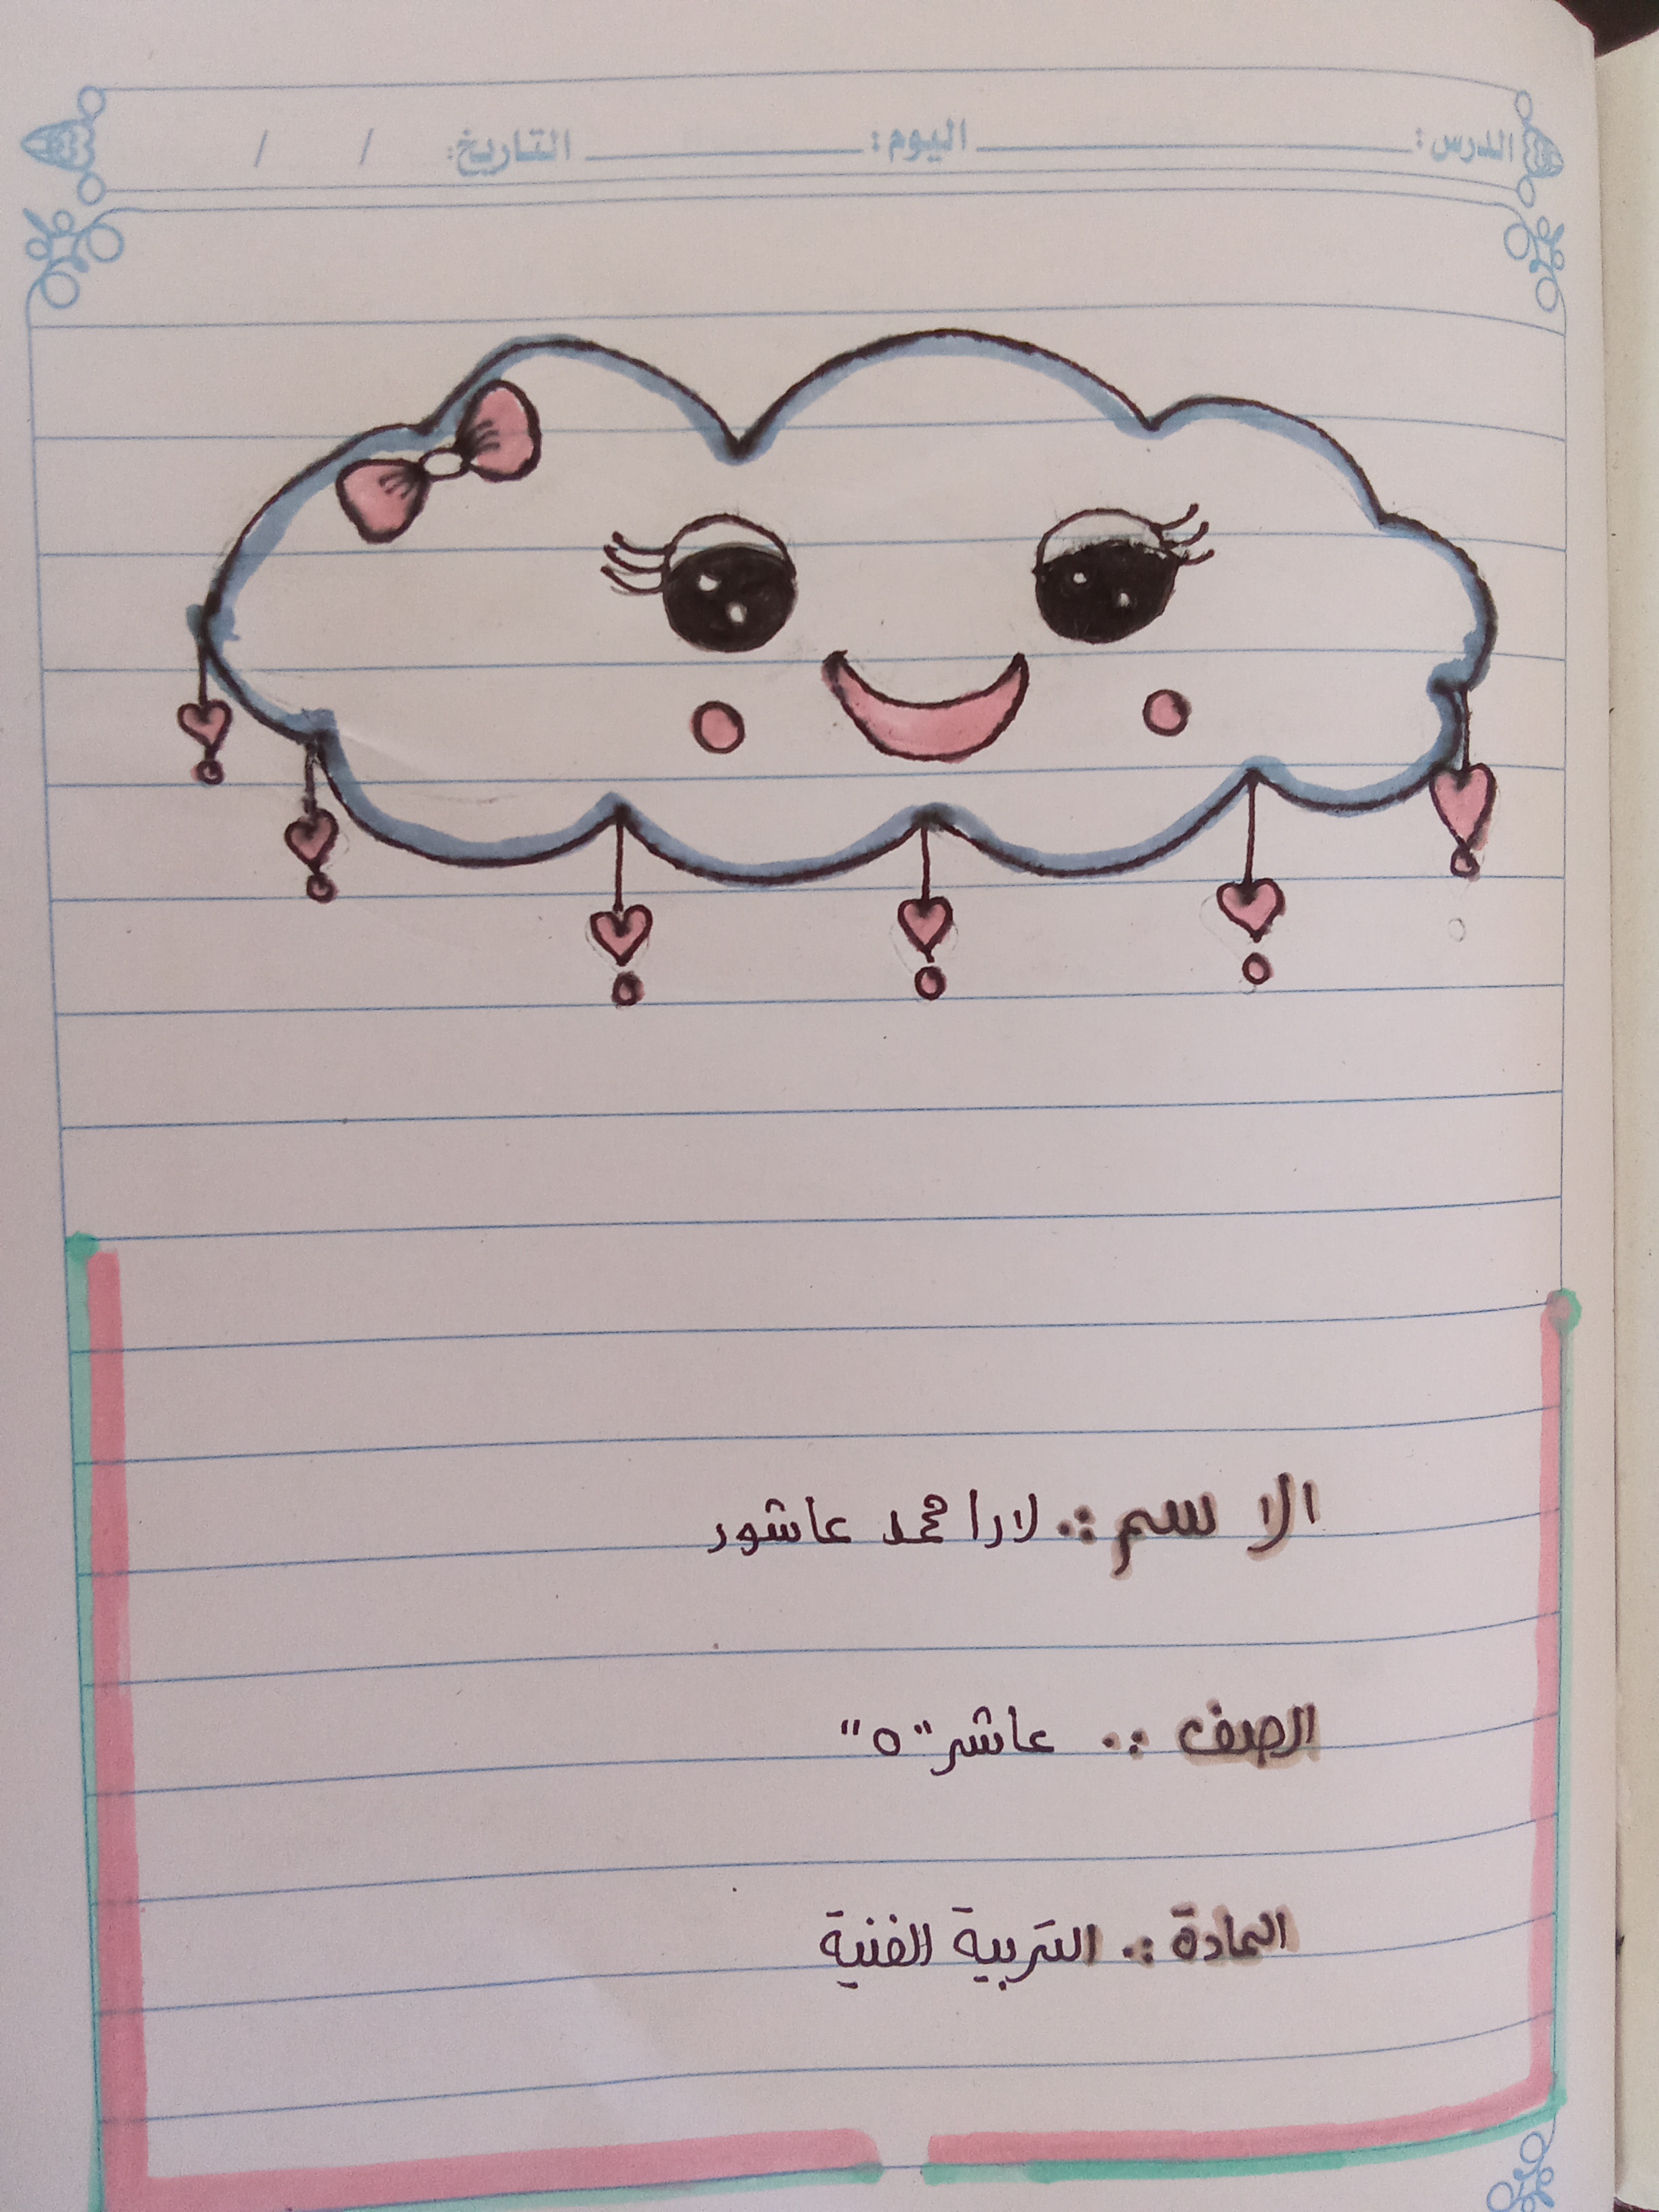 الدرس: اليوم: التاريخ: / /
الاسم :. لارا محمد عاشور
الصف :. عاشر "٥"
المادة :. التربية الفنية